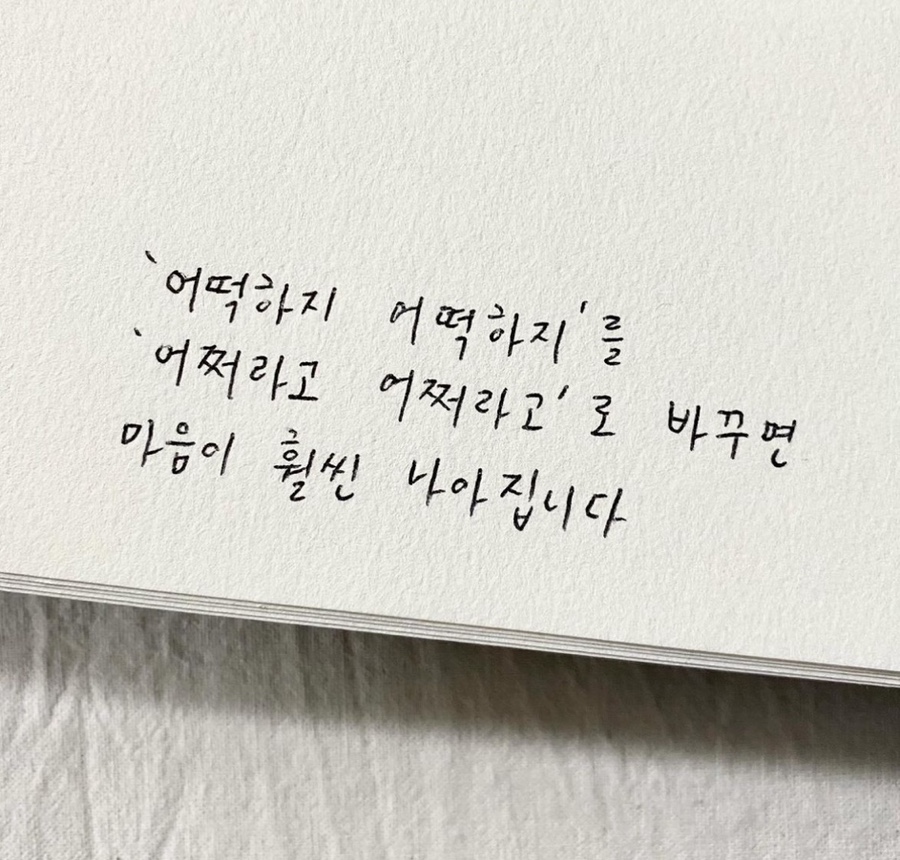 '어떡하지 어떡하지'를
'어쩌라고 어쩌라고'로 바꾸면
마음이 훨씬 나아집니다